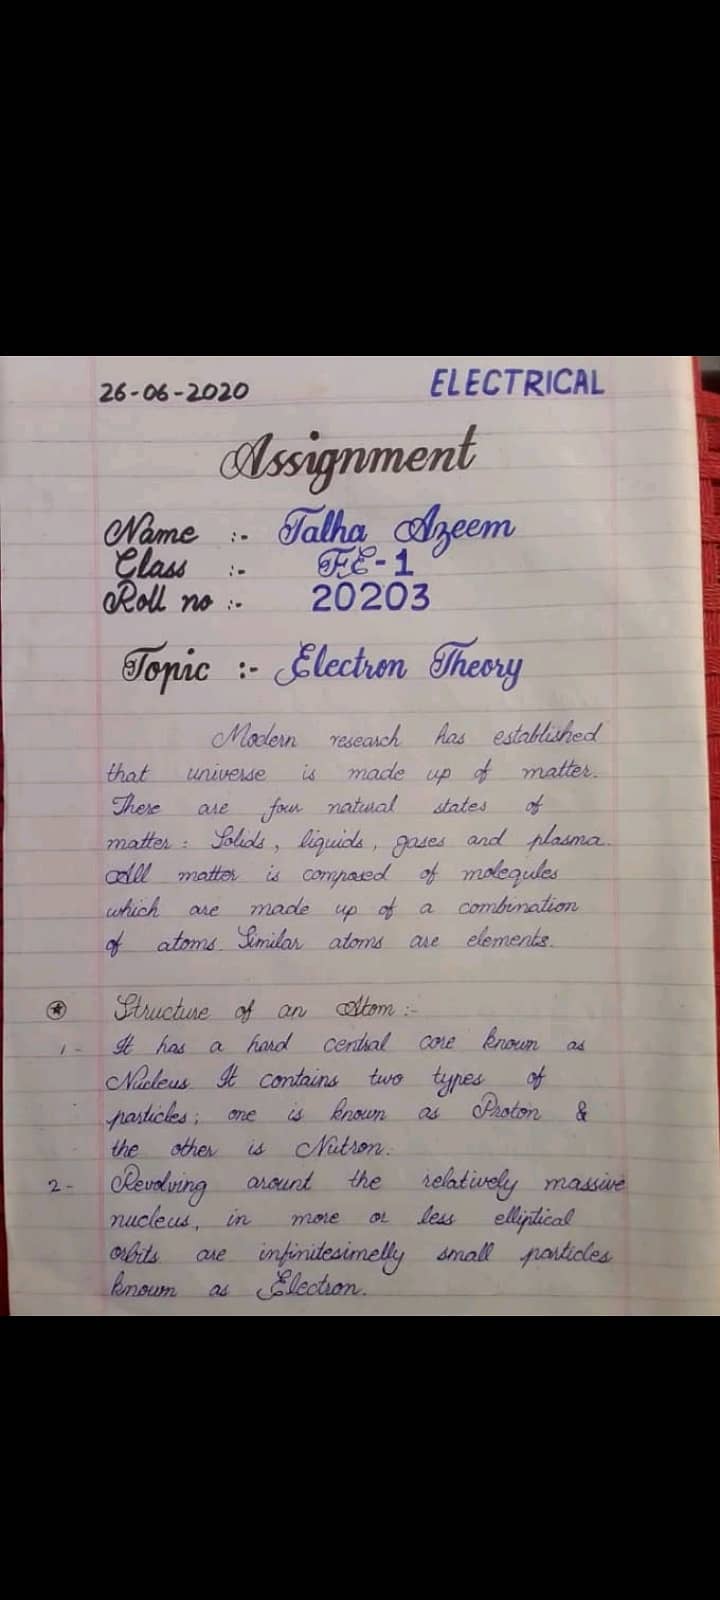 26-06-2020 ELECTRICAL
Assignment
Name :- Talha Azeem
Class :- FE-1
Roll no :- 20203
Topic :- Electron Theory
Modern research has established
that universe is made up of matter.
There are four natural states of
matter : Solids, liquids, gases and plasma.
All matter is composed of molequles
which are made up of a combination
of atoms. Similar atoms are elements.
Structure of an Atom :-
1- It has a hard central core known as
Nucleus It contains two types of
particles; one is known as Proton &
the other is Nutron.
2- Revolving arount the relatively massive
nucleus, in more or less elliptical
orbits are infinitesimelly small particles
known as Electron.